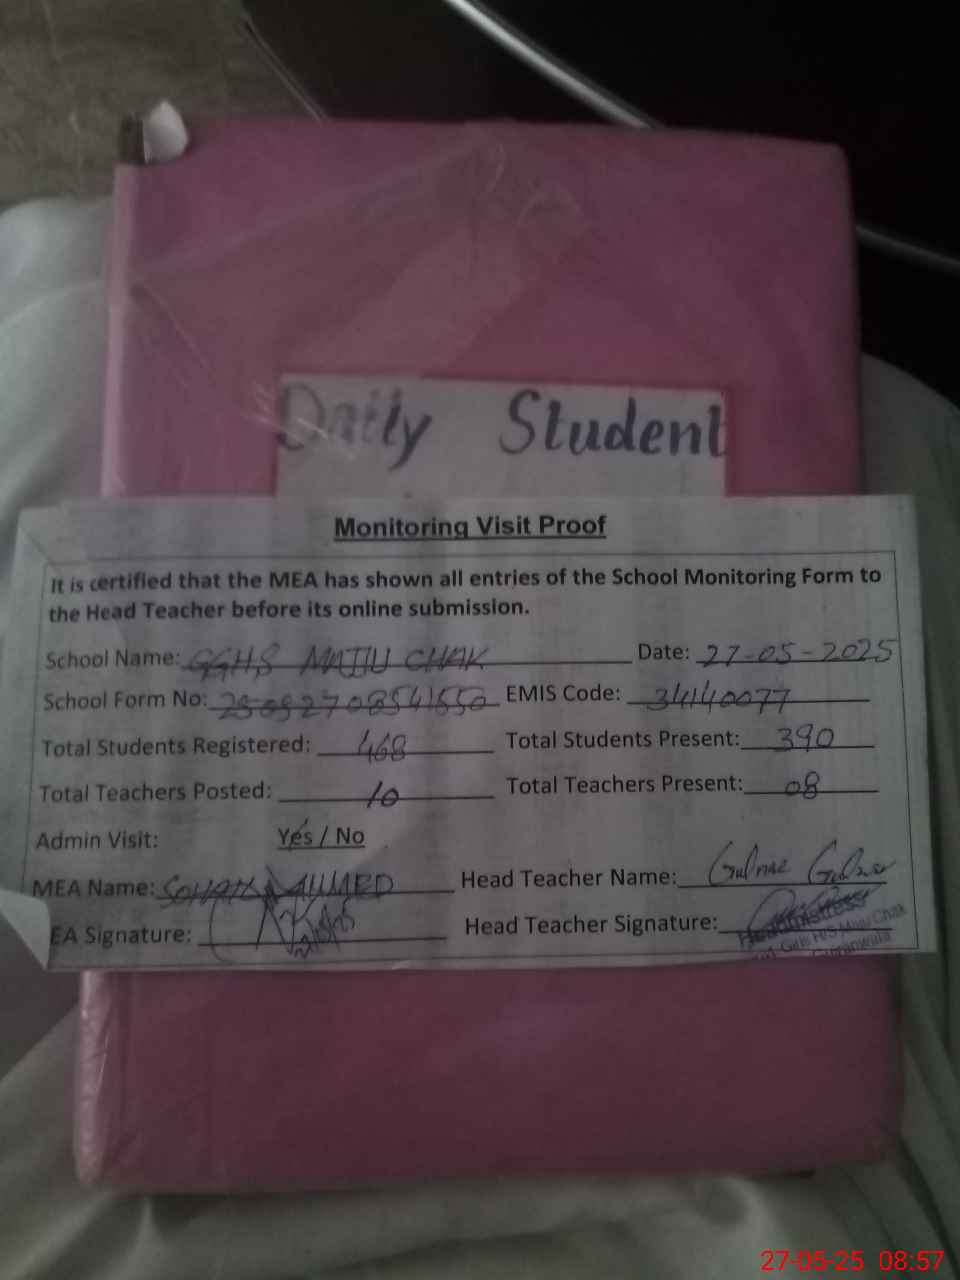 Daily Student
Monitoring Visit Proof
It is certified that the MEA has shown all entries of the School Monitoring Form to
the Head Teacher before its online submission.
School Name: GGHS MAJJU CHAK Date: 27-05-2025
School Form No: 25052708541550 EMIS Code: 34140077
Total Students Registered: 468 Total Students Present: 390
Total Teachers Posted: 10 Total Teachers Present: 08
Admin Visit: Yes / No
MEA Name: AHMED Head Teacher Name:
EA Signature: Head Teacher Signature:
Headmistress
Girls H/S Chak
27-05-25 08:57